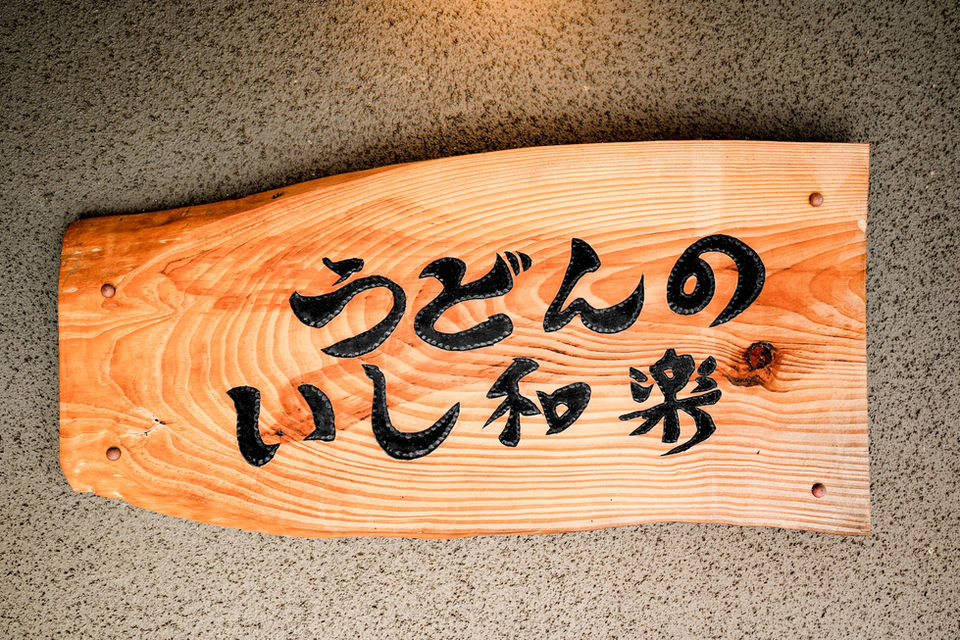 うどんの
いし和楽